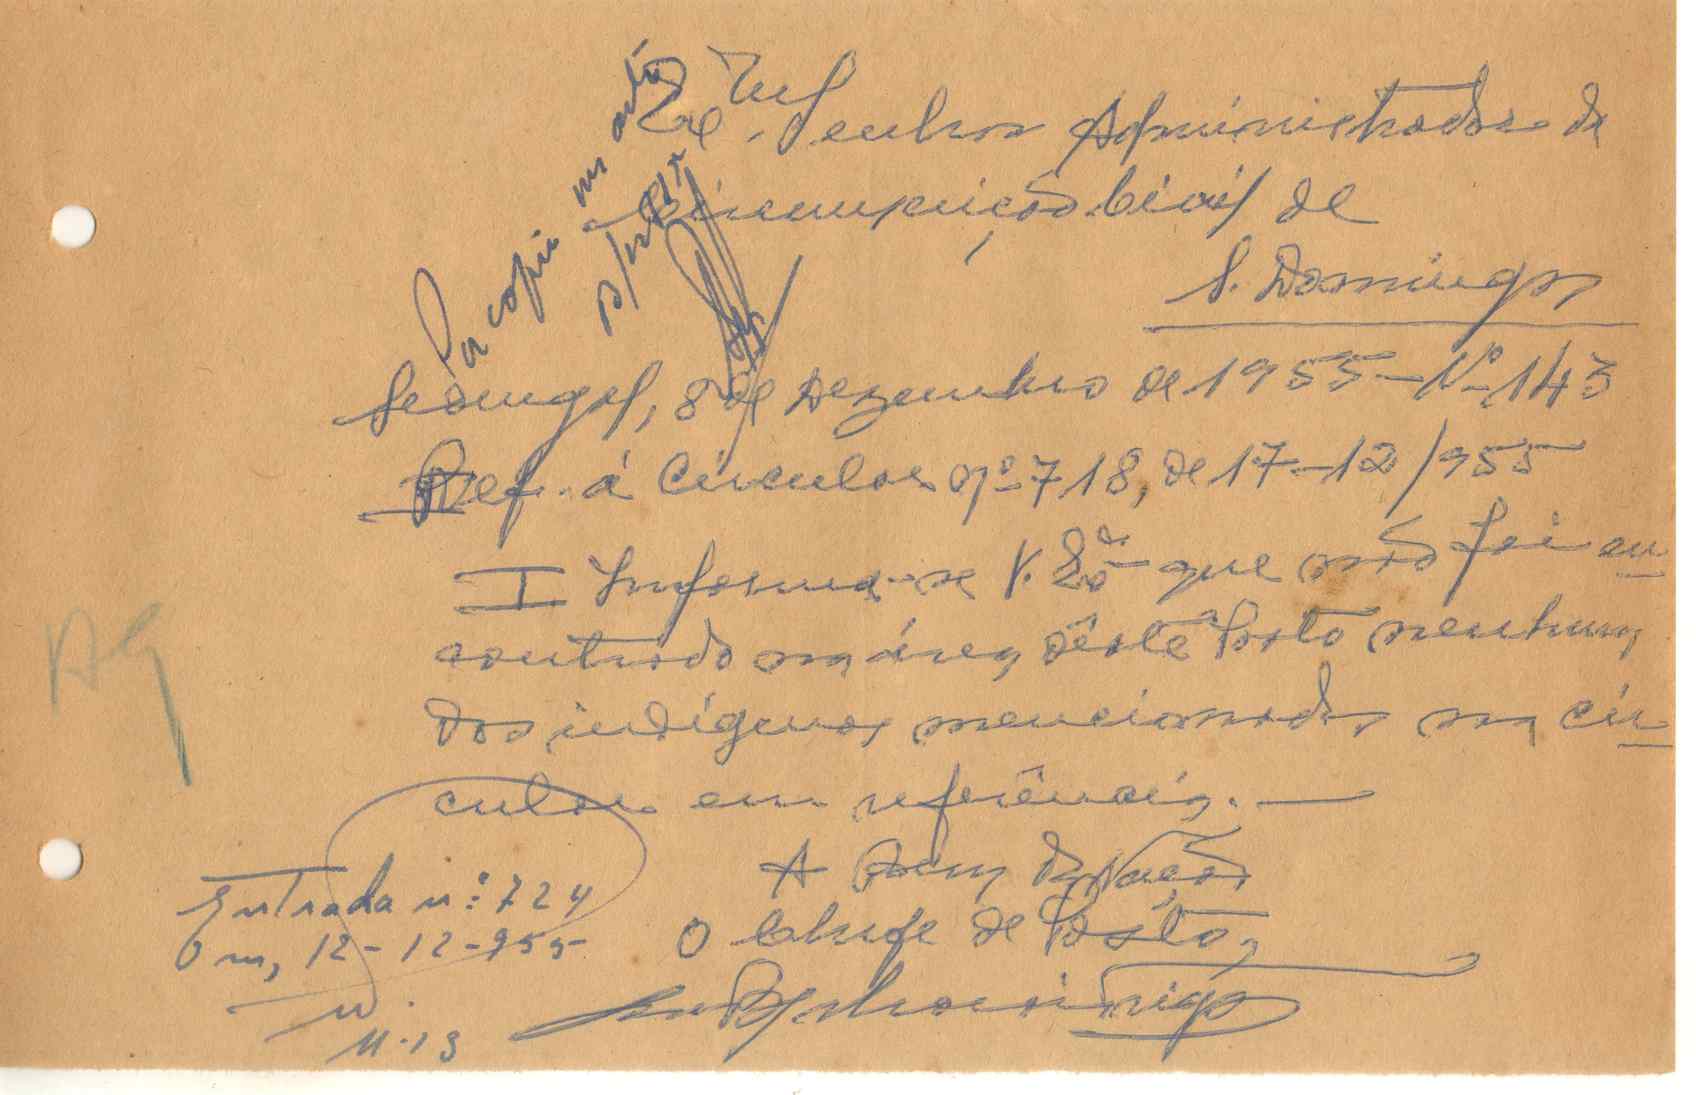 Exmº. Senhor Administrador da
Circunscrição Civil de
S. Domingos
Sedengal, 8 de Dezembro de 1955 — Nº 143
Ref. á Circular nº 718, de 17-12/955
I Informa-se V. Exª que não foi en
contrado na área dêste Posto nenhum
dos indígenas mencionados na cir
cular em referência. —
A Bem da Nação
O Chefe de Pôsto,
Entrada nº: 724
Em, 12-12-955
11-13
a copiu
AG